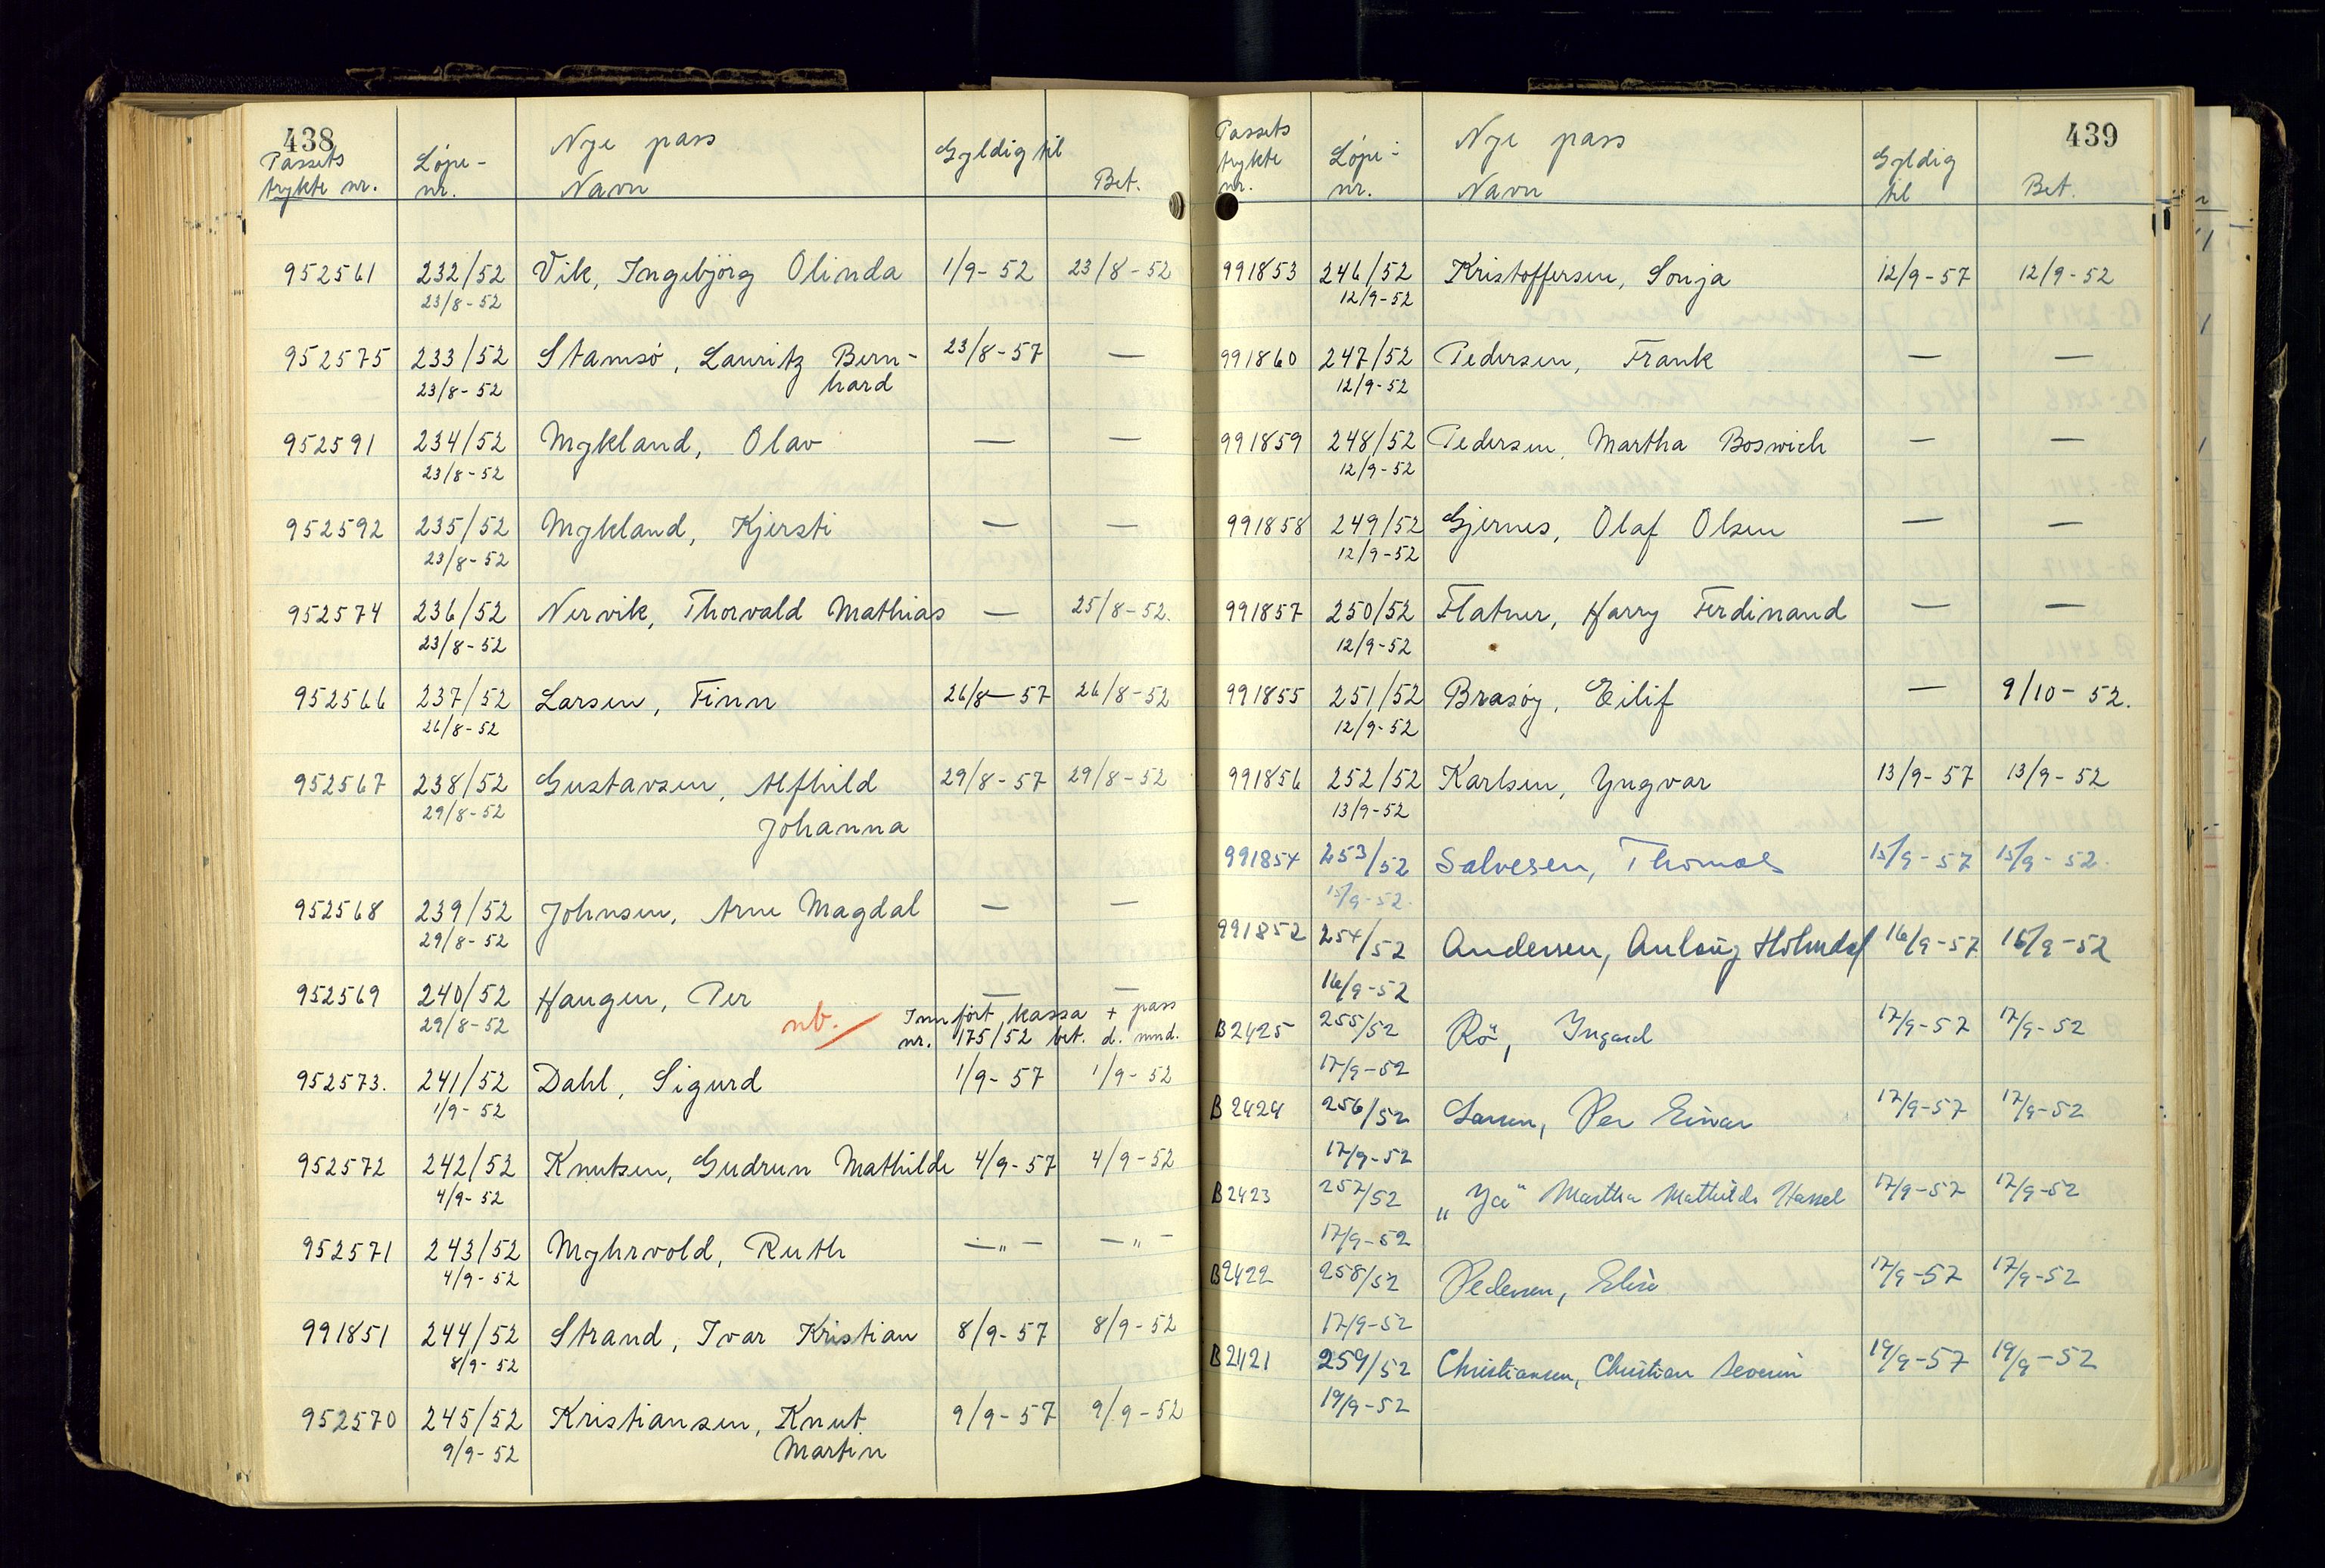 438
Passets Løpe- Nye pass Gyldig til
trykte nr. nr. Navn Bet.
952561 232/52 Vik, Ingebjörg Olinda 1/9-52 23/8-52
23/8-52
952575 233/52 Stamsö, Lauritz Bern- 23/8-57 —
23/8-52 hard
952591 234/52 Mykland, Olav — —
23/8-52
952592 235/52 Mykland, Kjersti — —
23/8-52
952574 236/52 Nervik, Thorvald Mathias — 25/8-52.
23/8-52
952566 237/52 Larsen, Finn 26/8-57 26/8-52
26/8-52
952567 238/52 Gustavsen, Alfhild 29/8-57 29/8-52
29/8-52 Johanna
952568 239/52 Johnsen, Arne Magdal — —
29/8-52
952569 240/52 Haugen, Per — —
29/8-52 nb. Innfört kassa + pass
nr. 175/52 bet. d. mnd.
952573. 241/52 Dahl, Sigurd 1/9-57 1/9-52
1/9-52
952572 242/52 Knutsen, Gudrun Mathilde 4/9-57 4/9-52
4/9-52
952571 243/52 Myhrvold, Ruth —"— —"—
4/9-52
991851 244/52 Strand, Ivar Kristian 8/9-57 8/9-52
8/9-52
952570 245/52 Kristiansen, Knut 9/9-57 9/9-52
9/9-52 Martin
439
Passets Nye pass
trykte Løpe- Gyldig
nr. nr. Navn til Bet.
991853 246/52 Kristoffersen, Sonja 12/9-57 12/9-52
12/9-52
991860 247/52 Pedersen, Frank — —
12/9-52
991859 248/52 Pedersen, Martha Boswich — —
12/9-52
991858 249/52 Gjernes, Olaf Olsen — —
12/9-52
991857 250/52 Flatner, Harry Ferdinand — —
12/9-52
991855 251/52 Brasöy, Eilif — 9/10-52.
12/9-52
991856 252/52 Karlsen, Yngvar 13/9-57 13/9-52
13/9-52
991854 253/52 Salvesen, Thomas 15/9-57 15/9-52.
15/9-52.
991852 254/52 Andersen, Anlaug Holmdal 16/9-57 16/9-52
16/9-52
B2425 255/52 Rö, Ingard 17/9-57 17/9-52
17/9-52
B2424 256/52 Larsen, Per Einar 17/9-57 17/9-52
17/9-52
B2423 257/52 Martha Mathilde Hassel 17/9-57 17/9-52
17/9-52
B2422 258/52 Pedersen, Elise 17/9-57 17/9-52
17/9-52
B2421 259/52 Christiansen, Christian Severin 19/9-57 19/9-52
19/9-52